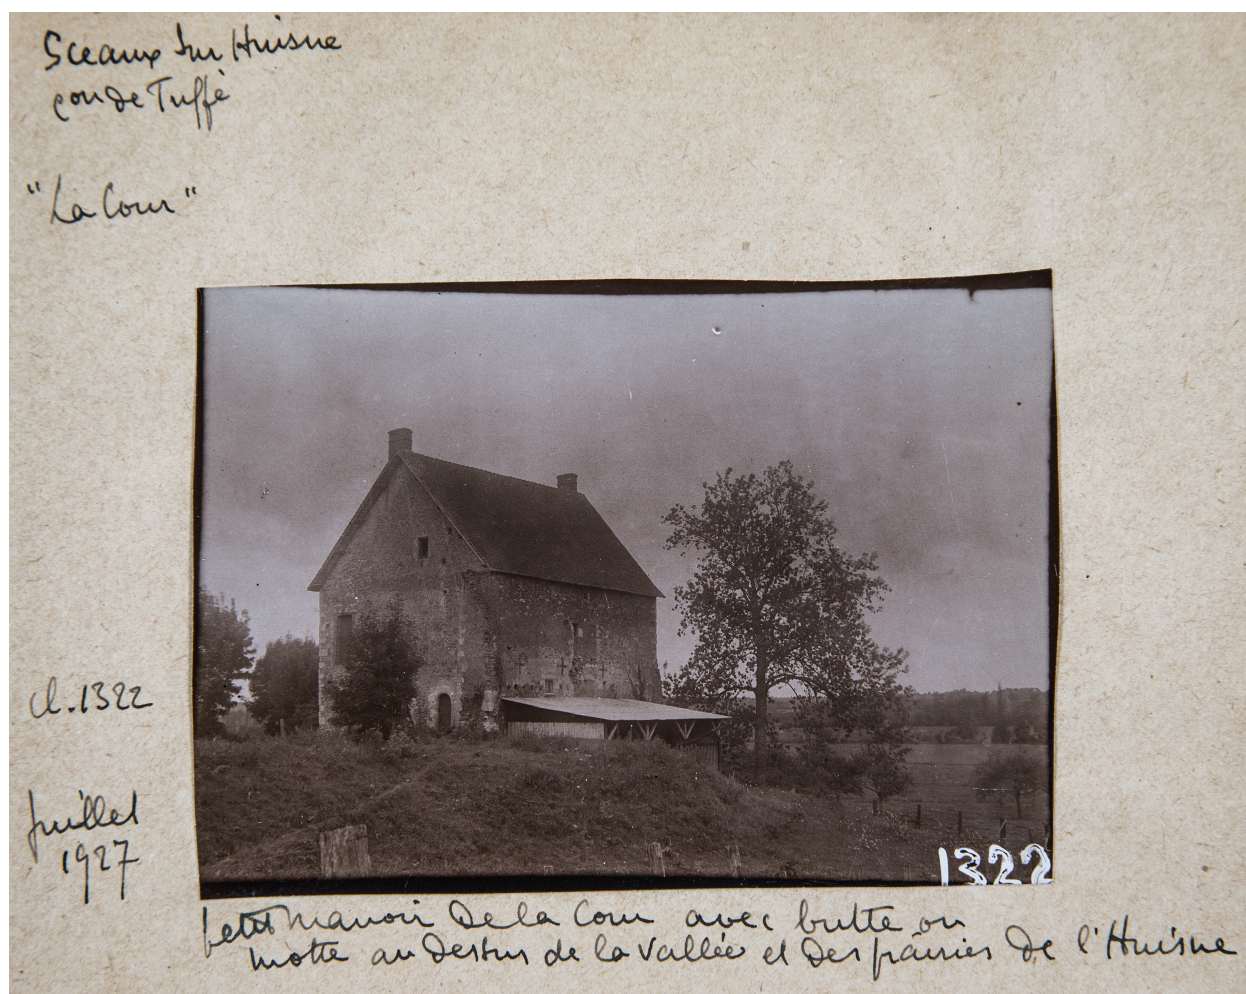 Sceaux sur Huisne
con de Tuffé
"La Cour"
cl. 1322
Juillet
1927
1322
petit manoir de la Cour avec butte ou
motte au dessus de la vallée et des prairies de l'Huisne